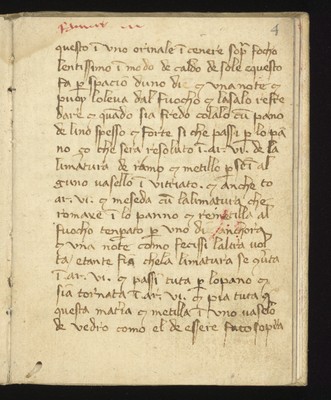 4
questo ī uno orinale ī cenere sopª focho
lentissimo ī modo de caldo de sole e questo
fa p spacio duno di e una note e
puoy loleva dal fuocho e lasalo refre
dare e quādo sia fredo colalo cū pano
de lino spesso e forte si che passi p lo pa
no zo che sera resoluto ī .ar. vi. de la
limatura de ramo e metillo p se ī al
guno vasello ī vitriato. e anche to
.ar. vi. e meseda cū la limatura che
romaxe ī lo panno e remetilla al
fuocho tenpato p uno di anchora
e una note como fecisti laltra vol
ta/ e tante fia che la limatura se
ī .ar. vi. e passi tuta p lo pano e
sia tornata ī .ar. vi. e pia tuta
questa matia e metilla ī uno vasello
de vedro como el de essere fato sopra